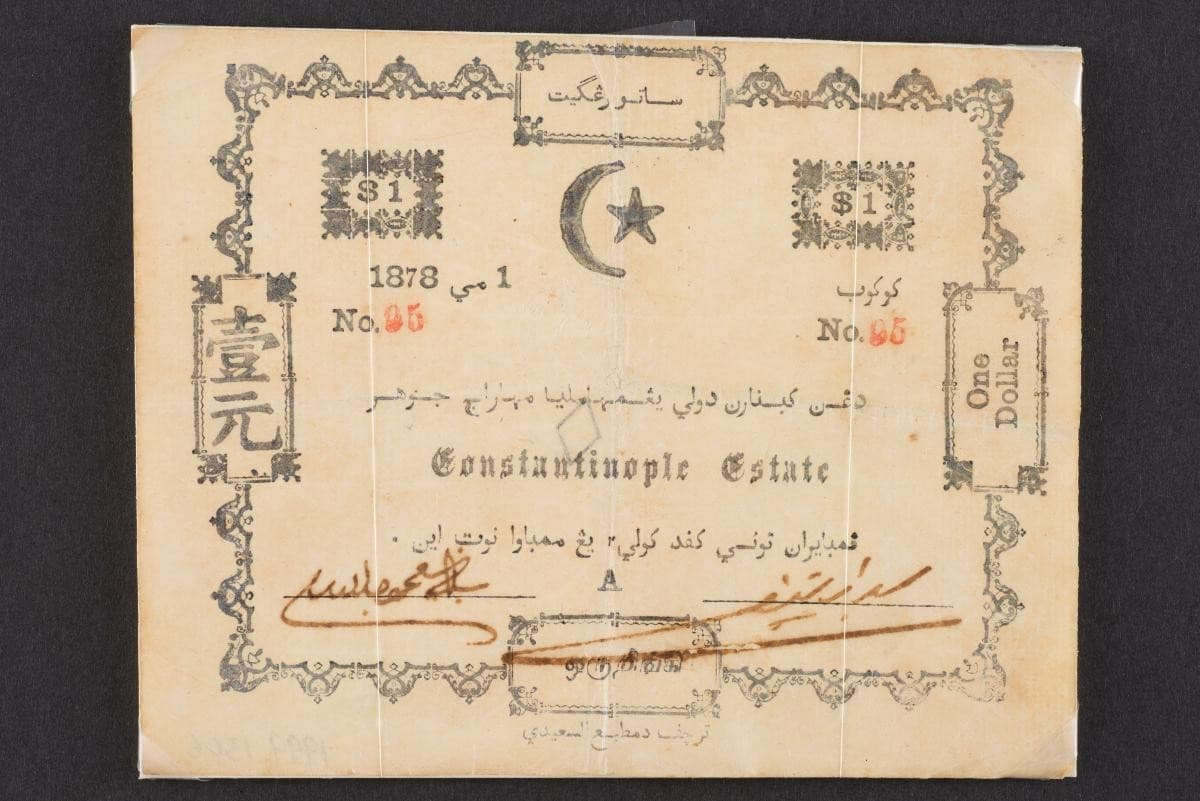 ساتو رڠگيت
$1
$1
1 مي 1878
كوكوب
No. 95
No. 95
壹元
One
Dollar
دڠن كبنارن دولي يڠمهامليا مهاراج جوهر
Constantinople Estate
فمبايران تونسي كفد كولي٢ يڠ ممباوا نوت اين.
A
ترچف دمطبع السعيدي